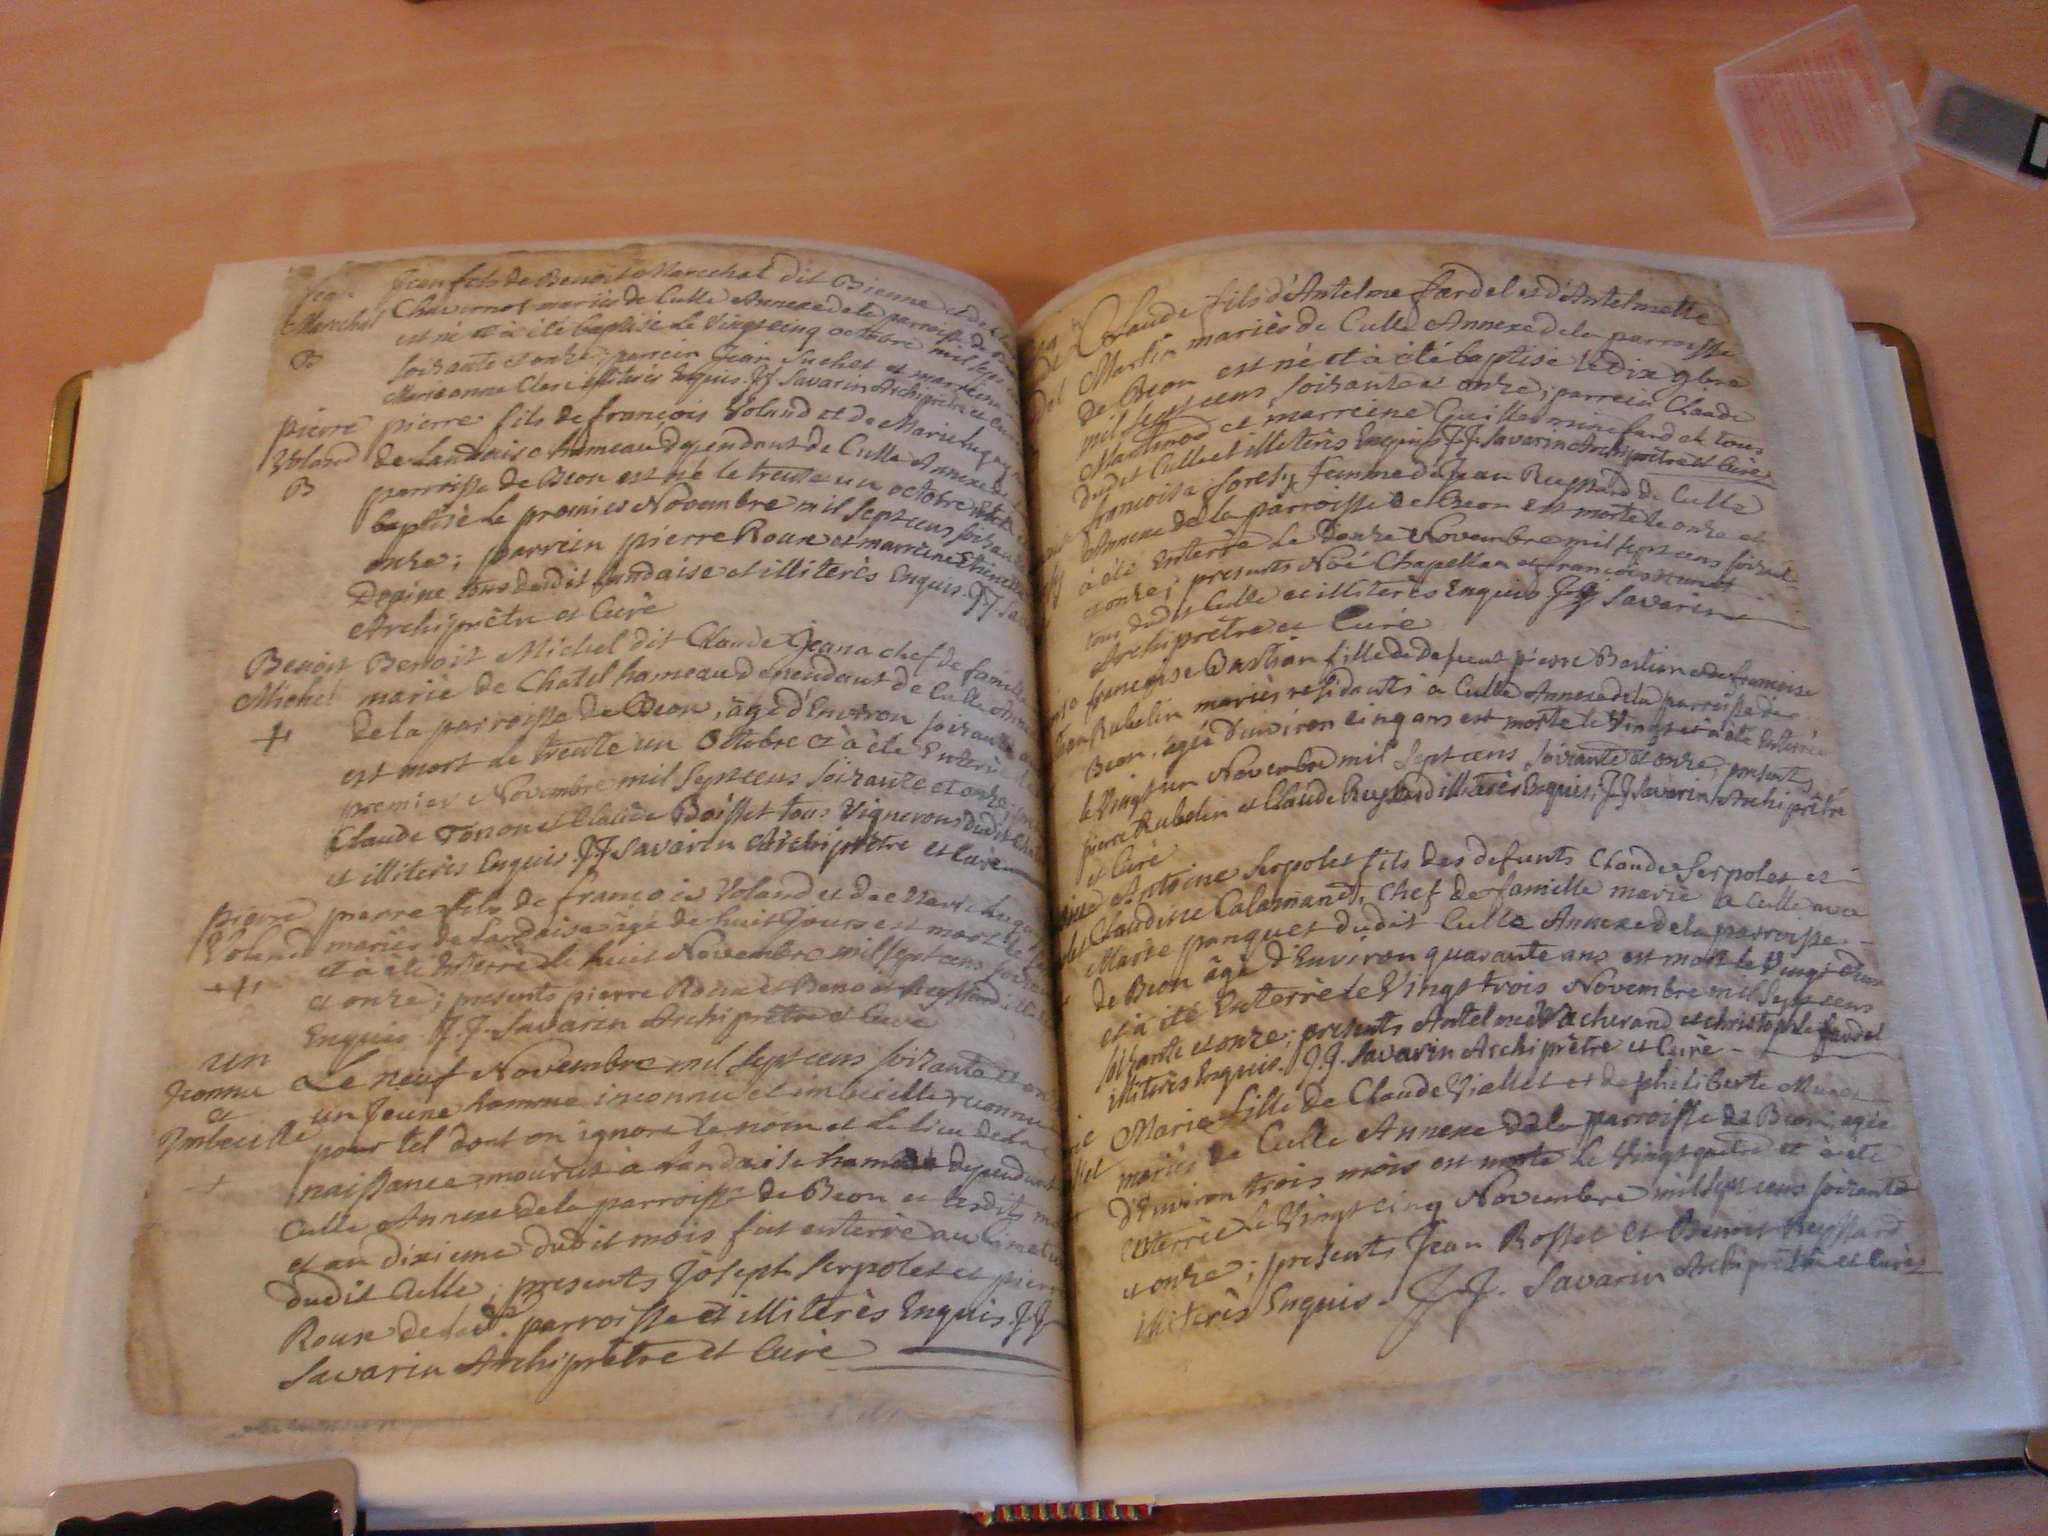 Jean fils de Benoit Marechal dit Bienne et de
Marechal
Chavernot mariés de Culle Annexe de la parroisse de
B
est né et à été baptisé le Vingt cinq octobre mil sept
soixante et onze; parrein Jean Suchet et marreine
Marieanne Clerc illiterés Enquis. JJ Savarin Archiprêtre et Curé
pierre
Voland
B
pierre fils de françois Voland et de Marie
de Landaise hameau dependant de Culle Annexe de
parroisse de Beon est né le trente un octobre
baptisé le premier Novembre mil sept cens soixante
onze; parrein pierre Roux et marreine
Depine tous dudit Landaise et illiterés Enquis. JJ. Sava
Archiprêtre et Curé
Benoit
Michel
+
Benoit Michel dit Claude Jeana chef de famille
marié de Chatel hameau dependant de Culle Anne
de la parroisse de Beon, âgé d'Environ soixante
est mort le trente un Octobre et à été Enterré
premier Novembre mil sept cens soixante et onze;
Claude Tonon et Claude Boisset tous Vignerons dudit
et illiterés Enquis. JJ Savarin Archiprêtre et Curé
pierre
Voland
+
pierre fils de françois Voland et de Marie
mariés de Landaise âgé de huit Jours est mort le
et à été Enterré le huit Novembre mil sept cens soixan
et onze; presents pierre Roux et Benoit Reyssard
Enquis. J.J. Savarin Archiprêtre et Curé
un
Iconnu
et
Imbecille
+
Le neuf Novembre mil sept cens soixante et on
un Jeune homme inconnu et imbecille reconnu
pour tel dont on ignore le nom et le lieu de la
naissance, mourut à Landaise hameau dependant
Culle Annexe de la parroisse de Beon et lesdits
et an dixieme dudit mois fut enterré au Cimetie
dudit Culle; presents Joseph Serpolet et pierre
Roux de ladte. parroisse et illiterés Enquis. JJ
Savarin Archiprêtre et Curé
Claude fils d'Antelme fardel et d'Antelmette
Martin mariés de Culle Annexe de la parroisse
de Beon est né et à été baptisé le dix 9bre
mil sept cens soixante et onze; parrein Claude
Martinod et marreine Guillermine fardel tous
dudit Culle et illiterés Enquis JJ. Savarin Archiprêtre et Curé
francoise forest, femme de Jean Reyssard de Culle
Annexe de la parroisse de Beon est morte le onze et
à été Enterrée le Douze Novembre mil sept cens soixante
et onze; presents Noé Chapellan et françois
tous dudit Culle et illiterés Enquis. JJ Savarin
Archiprêtre et Curé
francoise Bastian fille de defunt pierre Bastian et de francoise
Rubelin mariés residants à Culle Annexe de la parroisse de
Beon, agée d'environ cinq ans est morte le Vingt et à été Enterrée
le Vingt un Novembre mil sept cens soixante et onze, presents
pierre Rubelin et Claude Reyssard illiterés Enquis; JJ Savarin Archiprêtre
et Curé
Antoine Serpolet fils des defunts Claude Serpolet et
Claudine Calamand, Chef de famille marié à Culle avec
Marie panquet dudit Culle Annexe de la parroisse
de Beon âgé d'Environ quarante ans est mort le Vingt deux
et à été Enterré le Vingt trois Novembre mil sept cens
soixante et onze; presents Antelme Vacherand et christophle fardel
illiterés Enquis. J.J. Savarin Archiprêtre et Curé
Marie fille de Claude Viallet et de philiberte
mariés de Culle Annexe de la parroisse de Beon; agée
d'Environ trois mois est morte le Vingt quatre et à été
Enterrée le Vingt cinq Novembre mil sept cens soixante
et onze; presents Jean Rosset et Benoit Reyssard
illiterés Enquis. JJ. Savarin Archiprêtre et Curé